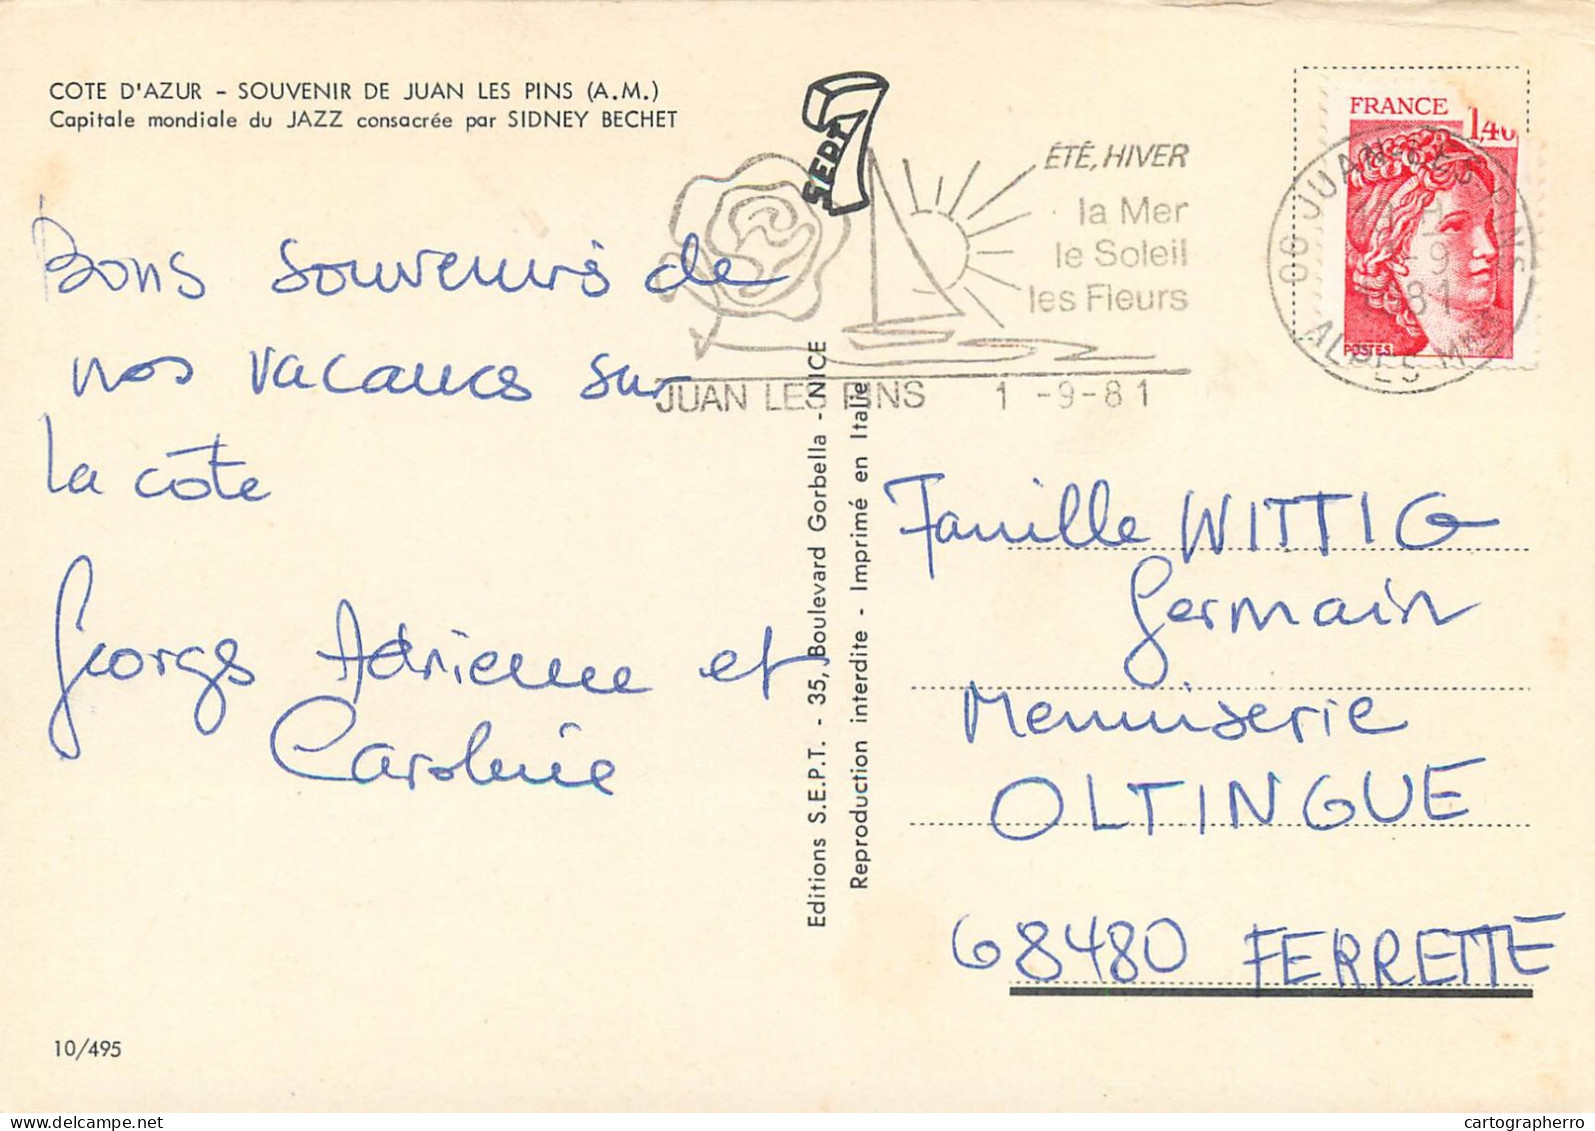 COTE D'AZUR - SOUVENIR DE JUAN LES PINS (A.M.)
Capitale mondiale du JAZZ consacrée par SIDNEY BECHET
SEPT
7
ÉTÉ, HIVER
la Mer
le Soleil
les Fleurs
JUAN LES PINS 1 -9-81
FRANCE 1,40
POSTES
06 JUAN-LES-PINS
1-9
1981
ALPES-Mmes
Bons souvenirs de
nos vacances sur
la côte
Georges Adrienne et
Caroline
Editions S.E.P.T. - 35, Boulevard Gorbella - NICE
Reproduction interdite - Imprimé en Italie
Famille WITTIG
Germain
Menuiserie
OLTINGUE
68480 FERRETTE
10/495
cartographerro